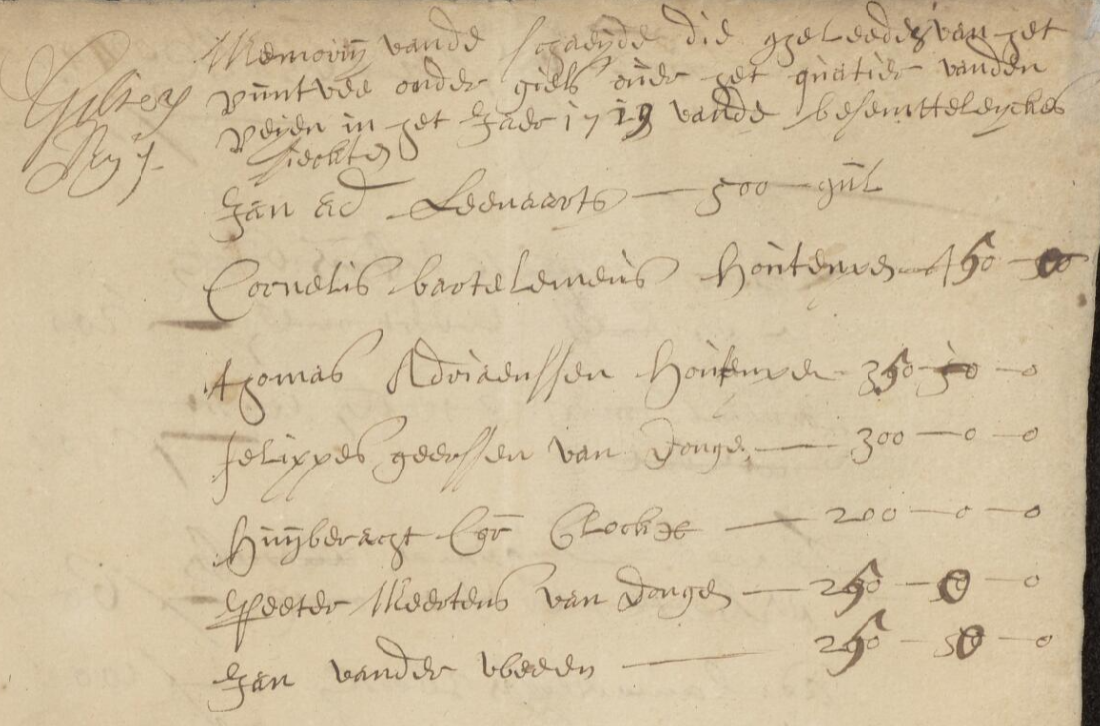 Gilsey
Rey
Memorij vande schaeijde die geleeden van het
runtvee onder giels ouer het quatier vanden
Reijen in het Jaer 1719 vande besmetteleycke
sieckte
Jan ad Leenaarts — 500 — gul
Cornelis bartelemeus Houtepen 450
Thomas Adriaenssen Houtepen 350 — 0
felippes geerssen van Donge — 300 — 0 — 0
Huijberacht Cor Clock — 200 — 0 — 0
Peeter Meertens van Dongen — 250 — 0 — 0
Jan vander vbeeen — 250 — 0 — 0